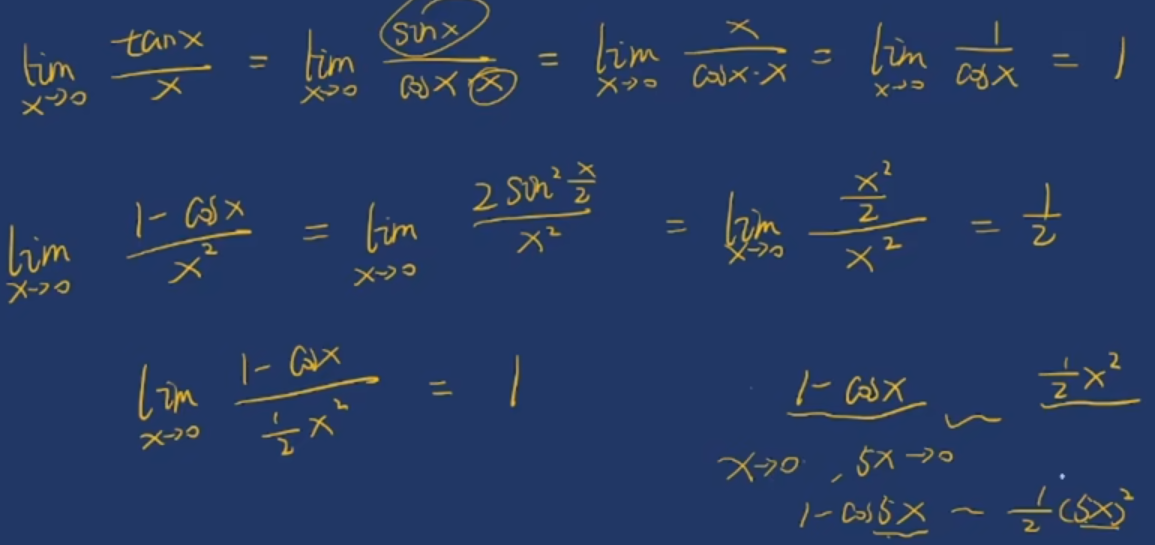 lim x→0 tanx/x = lim x→0 sinx/(cosx·x) = lim x→0 x/(cosx·x) = lim x→0 1/cosx = 1
lim x→0 (1-cosx)/x² = lim x→0 (2sin²(x/2))/x² = lim x→0 (x²/2)/x² = 1/2
lim x→0 (1-cosx)/(½x²) = 1
1-cosx ~ ½x²
x→0, 5x→0
1-cos5x ~ ½(5x)²